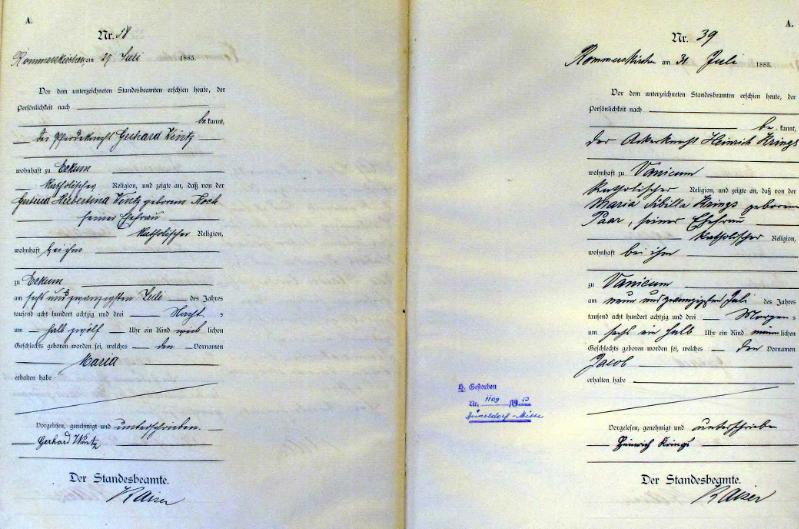 A.
Nr. 38
Rommerskirchen am 27 Juli 1883.
Vor dem unterzeichneten Standesbeamten erschien heute, der
Persönlichkeit nach
be kannt,
der Pferdeknecht Gerhard Kintz
wohnhaft zu Eckum
katholischer Religion, und zeigte an, daß von der
Gertrud Hubertina Kintz geborenen Koch
seiner Ehefrau
katholischer Religion,
wohnhaft bei ihm
zu Eckum
am sechsundzwanzigsten Juli des Jahres
tausend acht hundert achtzig und drei Nacht
um halb zwölf Uhr ein Kind weib lichen
Geschlechts geboren worden sei, welches den Vornamen
Maria
erhalten habe
Vorgelesen, genehmigt und unterschrieben.
Gerhard
Der Standesbeamte.
Kaiser
A.
Nr. 39
Rommerskirchen am 31 Juli 1883.
Vor dem unterzeichneten Standesbeamten erschien heute, der
Persönlichkeit nach
be kannt,
der Ackerknecht Heinrich Krings
wohnhaft zu Vanicum
katholischer Religion, und zeigte an, daß von der
Maria Sibilla Krings geborenen
Paar, seiner Ehefrau
katholischer Religion,
wohnhaft bei ihm
zu Vanicum
am neun und zwanzigsten Juli des Jahres
tausend acht hundert achtzig und drei Morgens
um sechs ein halb Uhr ein Kind männlichen
Geschlechts geboren worden sei, welches den Vornamen
Jacob
erhalten habe
Gestorben
Nr. 1109
Düsseldorf-Mitte
Vorgelesen, genehmigt und unterschrieben
Heinrich Krings
Der Standesbeamte.
Kaiser